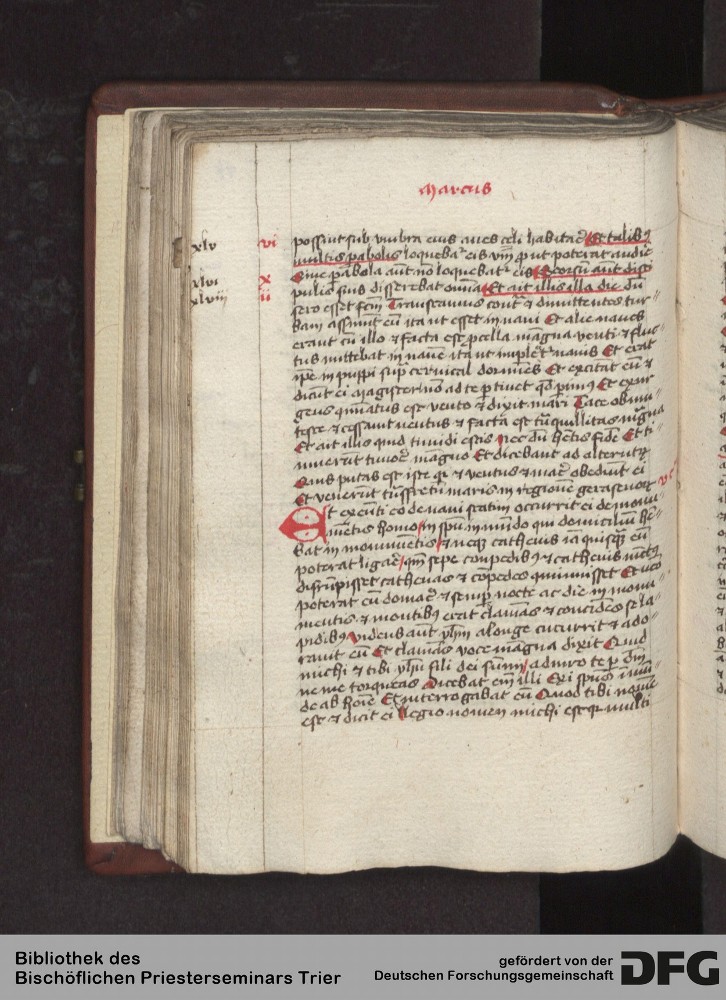 Marcus
xlv vi possint sub umbra eius aues celi habitare Et talibꝰ
multis pabolis loquebat eis verbū put poterat audire
Sine pabola aut nō loquebat eis Seorsū aut disci
xlvi x pulis suis disserebat omnia Et ait illis illa die dū
xlvii ii sero esset fcm Transeamus contra Et dimittentes tur
bam assumūt eū ita ut esset in naui Et alie naues
erant cū illo ⁊ facta est pcella magna venti ⁊ fluc
tus mittebat in nauē ita ut impleret nauis Et erat
ipe in puppi sup ceruical dormiēs Et excitāt eū ⁊
dicūt ei Magister nō ad te ptinet qd pimꝰ Et exur
gens cominatus est vento ⁊ dixit mari Tace obmu
tesce ⁊ cessauit uentus ⁊ facta est tranquillitas magna
Et ait illis quid timidi estis nec dū hetis fidē Et ti
muerūt timore magno Et dicebant ad alterutrū
Quis putas est iste qr ⁊ uentus ⁊ mare obediunt ei
Et venerūt trans fretū maris in regionē gerasenorū
v c
Et exeunti eo de naui statim occurrit ei de monu
mētis homo in spū inmūdo qui domiciliū he
bat in monumētis ⁊ neqꝫ cathenis iā quisqꝫ eū
poterat ligare qm̄ sepe conpedibꝰ ⁊ cathenis uinctꝰ
disrupisset cathenas ⁊ cōpedes cominuisset Et nemo
poterat eū domare ⁊ semp nocte ac die in monu
mentis ⁊ montibꝰ erat clamās ⁊ concidēs se la
pidibꝰ videns aut yhm a longe cucurrit ⁊ ado
rauit eū Et clamās voce magna dixit Quid
michi ⁊ tibi yhū fili dei summi adiuro te p dm
ne me torqueas Dicebat em illi Exi spūs inmū
de ab hoīe Et interrogabat eū Quod tibi nomē
est ⁊ dicit ei Legio nomen michi est qr multi
Bibliothek des
Bischöflichen Priesterseminars Trier
gefördert von der
Deutschen Forschungsgemeinschaft
DFG